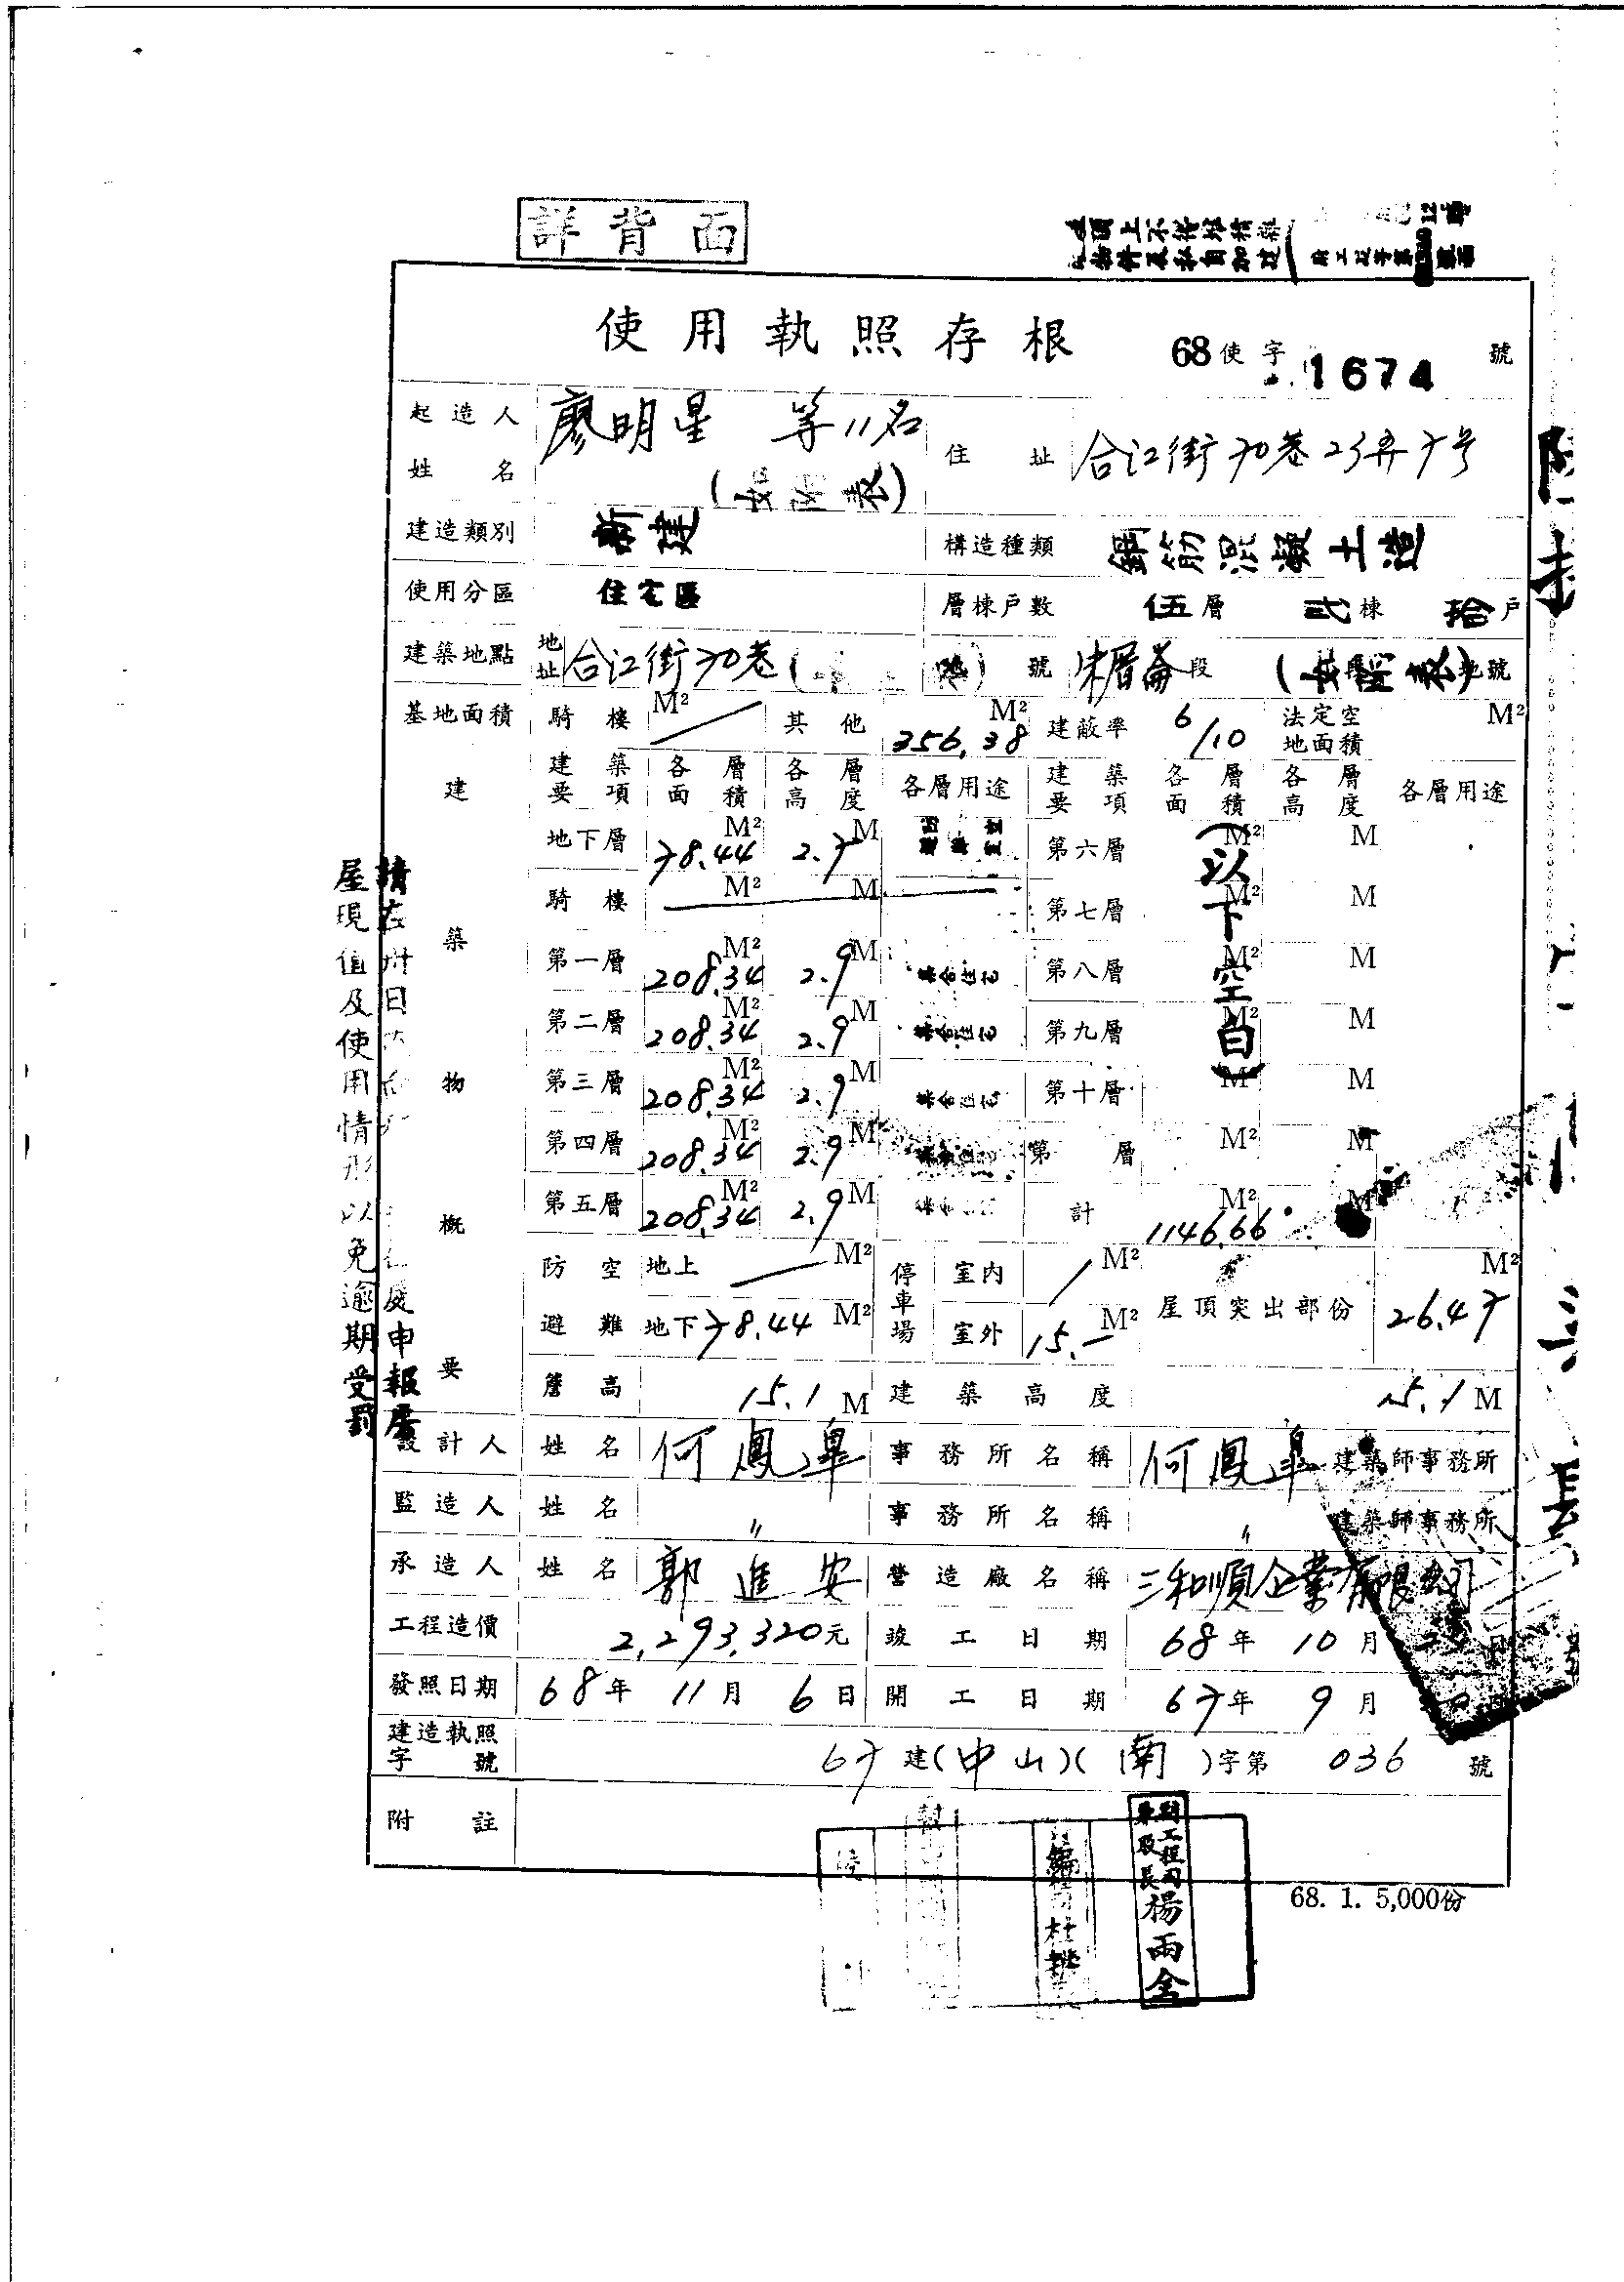 詳背面
使用執照存根 68使字 1674 號
起造人姓名 廖明星 等11名 (如附表) 住址 合江街70巷23弄7号
建造類別 新建 構造種類 鋼筋混凝土造
使用分區 住宅區 層棟戶數 伍層 貳棟 拾戶
建築地點 地址 合江街70巷 號 朱厝崙段 (如附表) 地號
基地面積 騎樓 M² 其他 356.38 M² 建蔽率 6/10 法定空地面積 M²
建築物概要
建築要項 各層面積 各層高度 各層用途 建築要項 各層面積 各層高度 各層用途
地下層 78.44 M² 2.7 M 第六層 M² M
騎樓 M² M 第七層 M² M
第一層 208.34 M² 2.9 M 集合住宅 第八層 M² M
第二層 208.34 M² 2.9 M 集合住宅 第九層 M² M
第三層 208.34 M² 2.9 M 集合住宅 第十層 M² M
第四層 208.34 M² 2.9 M 第 層 M² M
第五層 208.34 M² 2.9 M 計 1146.66 M² M
(以下空白)
防空避難 地上 M² 停車場 室內 M² 屋頂突出部份 26.47 M²
地下 78.44 M² 室外 15.— M²
簷高 15.1 M 建築高度 15.1 M
設計人 姓名 何鳳皐 事務所名稱 何鳳皐 建築師事務所
監造人 姓名 〃 事務所名稱 〃 建築師事務所
承造人 姓名 郭進安 營造廠名稱 三和順企業有限公司
工程造價 2,293,320元 竣工日期 68年 10月
發照日期 68年 11月 6日 開工日期 67年 9月
建造執照字號 67建(中山)(南)字第 036 號
附註
屋現值及使用情形以免逾期受罰
楊雨全
68. 1. 5,000份